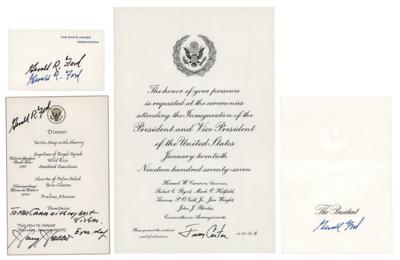 THE WHITE HOUSE
WASHINGTON
Gerald R. Ford
Gerald Ford
Gerald R. Ford
Dinner
Turtle Soup with Sherry
Supreme of Royal Squab
Wild Rice
Sautéed Zucchini
Hearts of Palm Salad
Brie Cheese
Praline Mousse
Demitasse
To with my best
wishes
THE WHITE HOUSE
The honor of your presence
is requested at the ceremonies
attending the Inauguration of the
President and Vice President
of the United States
January twentieth
Nineteen hundred seventy-seven
Howard W. Cannon, Chairman
Robert C. Byrd, Mark O. Hatfield
Thomas P. O'Neill, Jr., Jim Wright
John J. Rhodes
Committee on Arrangements
Jimmy Carter
The President
Gerald Ford